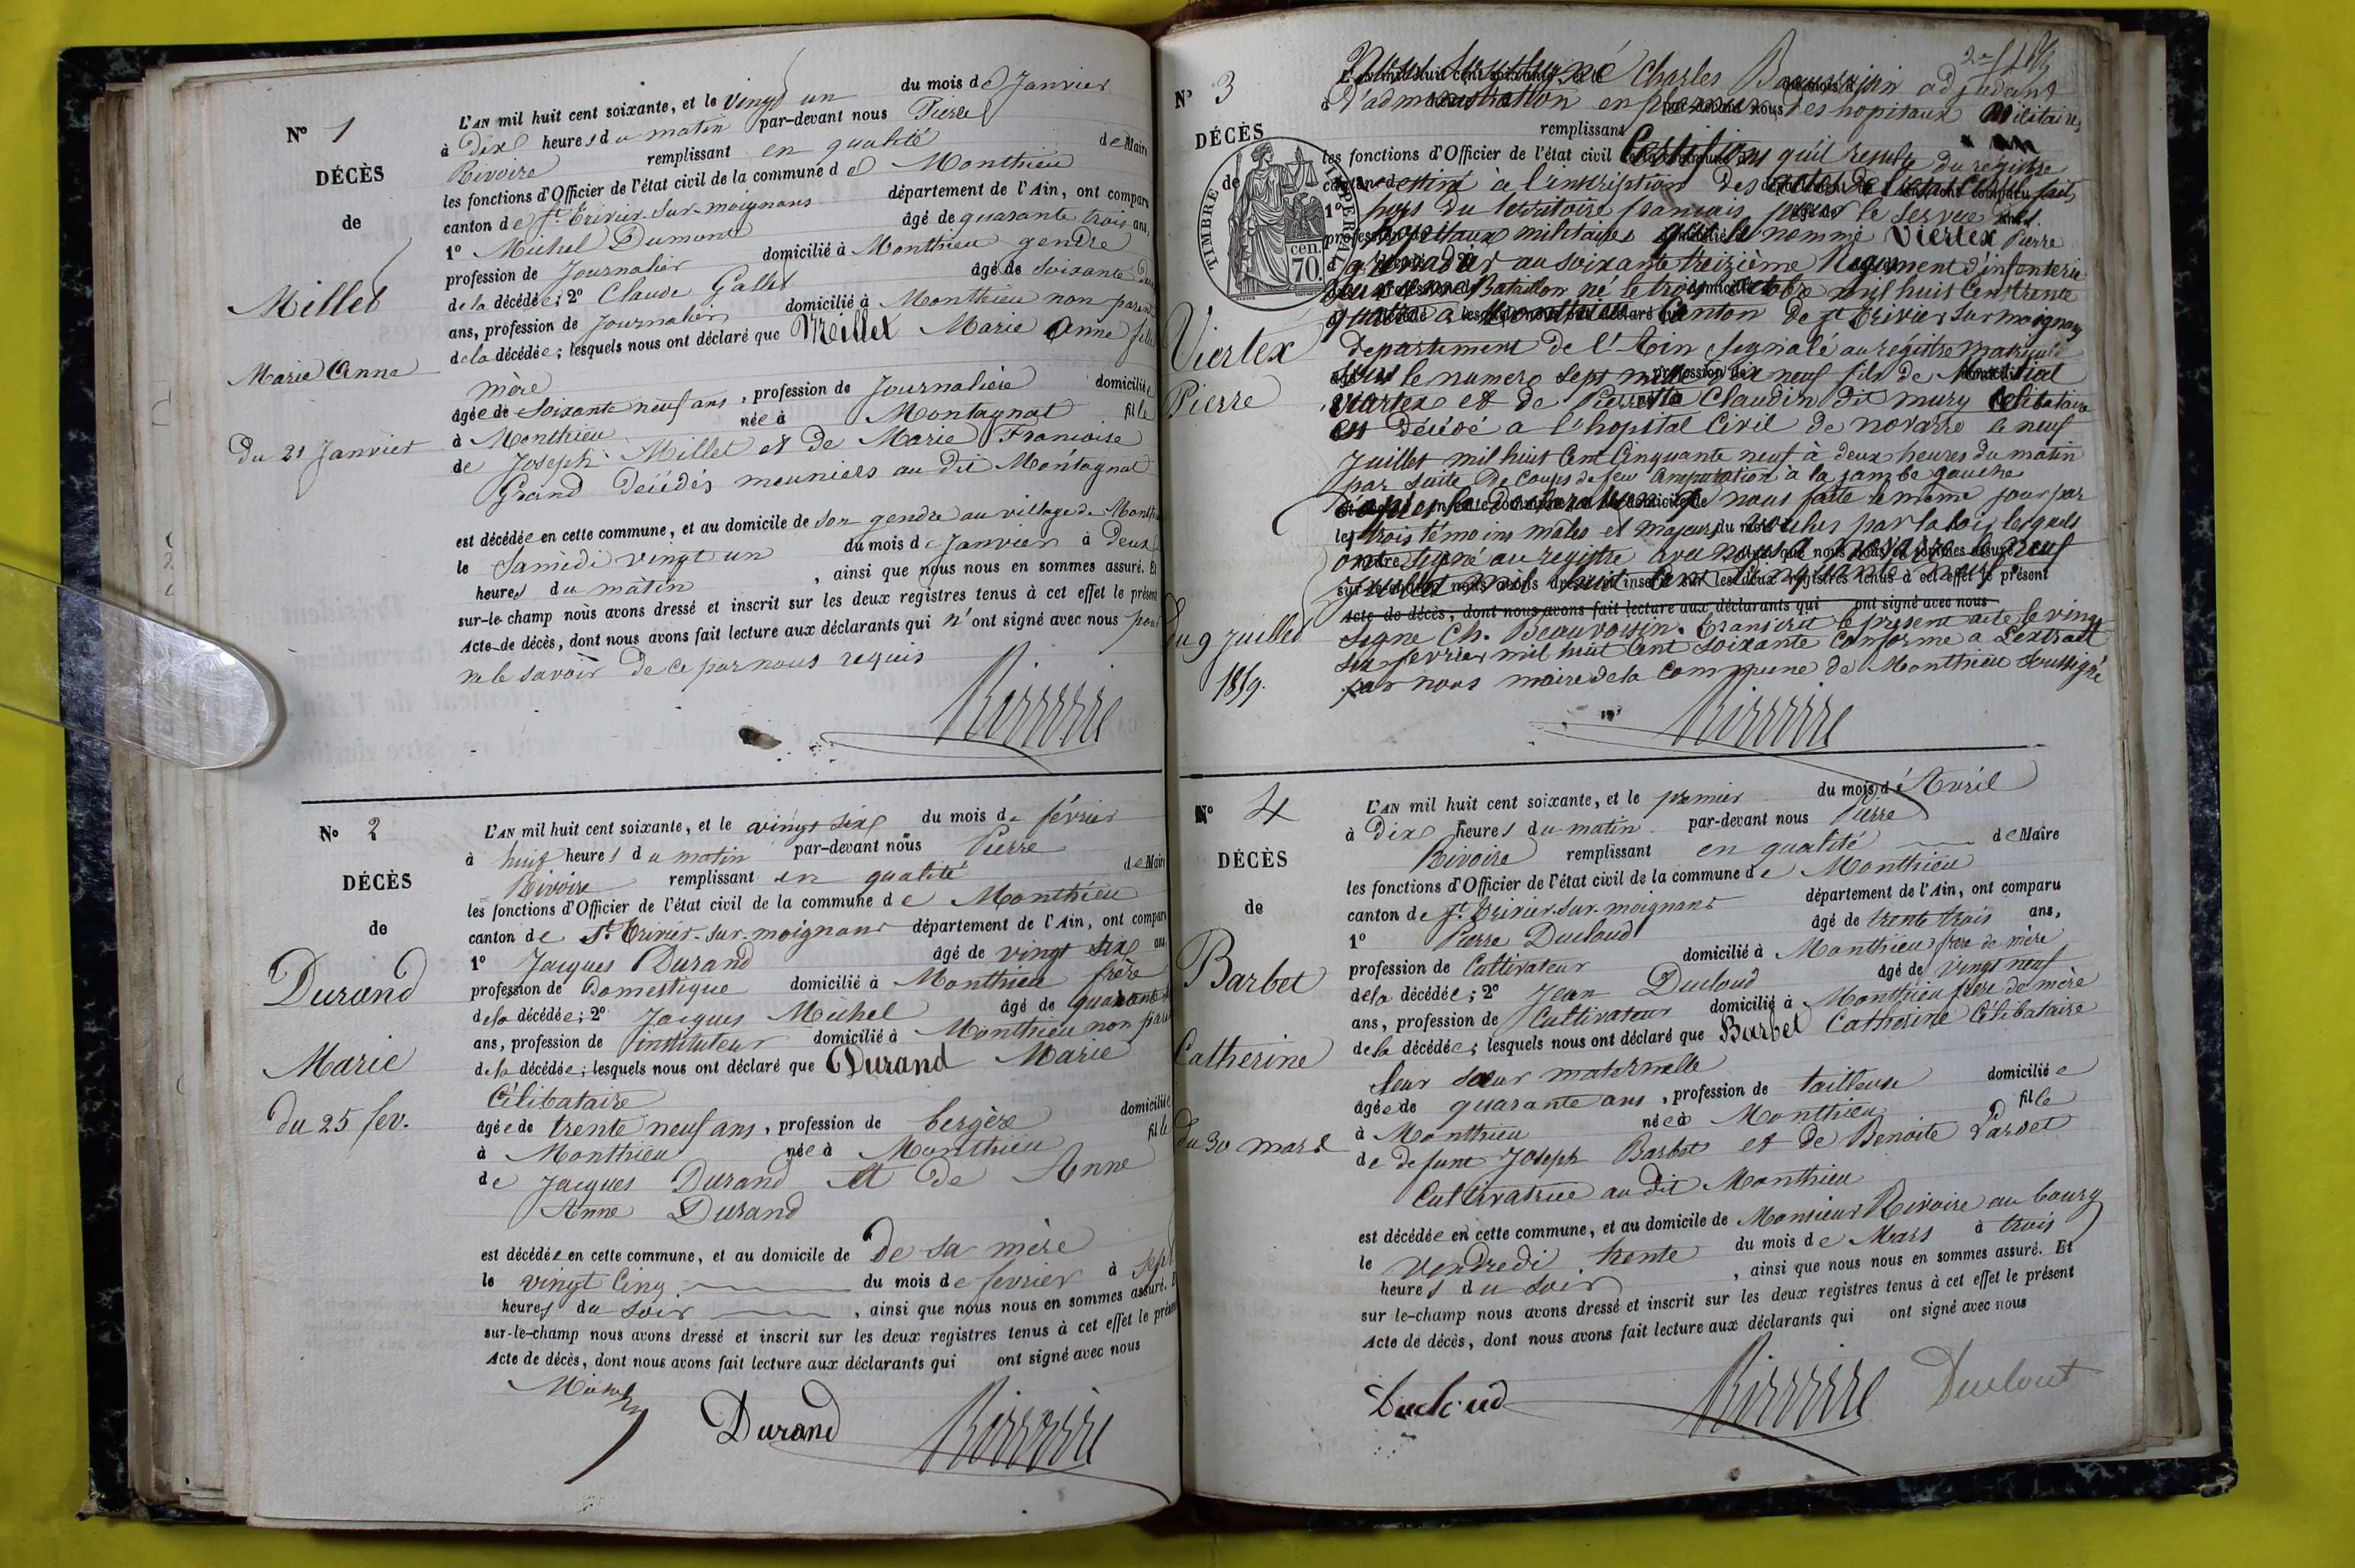 N° 1
DÉCÈS
de
Millet
Marie Anne
Du 21 Janvier
L'AN mil huit cent soixante, et le vingt un du mois de Janvier
à dix heures du matin par-devant nous Pierre
Rivoire remplissant en qualité de Maire
les fonctions d'Officier de l'état civil de la commune de Monthieu
canton de St Trivier-sur-moignans département de l'Ain, ont comparu
1° Michel Dumont âgé de quarante trois ans,
profession de Journalier domicilié à Monthieu gendre
de la décédée; 2° Claude Gallet âgé de soixante
ans, profession de Journalier domicilié à Monthieu non parent
de la décédée; lesquels nous ont déclaré que Millet Marie Anne fille
mère
âgée de soixante neuf ans, profession de Journalière domiciliée
à Monthieu née à Montagnat fille
de Joseph Millet et de Marie Francoise
Grand décédés meuniers au dit Montagnat
est décédée en cette commune, et au domicile de son gendre au village de
le Samedi vingt un du mois de Janvier à deux
heures du matin, ainsi que nous nous en sommes assuré. Et
sur-le-champ nous avons dressé et inscrit sur les deux registres tenus à cet effet le présent
Acte de décès, dont nous avons fait lecture aux déclarants qui n'ont signé avec nous pour
ne le savoir de ce par nous requis
Rivoire
N° 2
DÉCÈS
de
Durand
Marie
du 25 fev.
L'AN mil huit cent soixante, et le vingt six du mois de février
à huit heures du matin par-devant nous Pierre
Rivoire remplissant en qualité de Maire
les fonctions d'Officier de l'état civil de la commune de Monthieu
canton de St. Trivier-sur-moignans département de l'Ain, ont comparu
1° Jacques Durand âgé de vingt six ans
profession de Domestique domicilié à Monthieu frère
de la décédée; 2° Jacques Michel âgé de quarante
ans, profession de instituteur domicilié à Monthieu non
de la décédée; lesquels nous ont déclaré que Durand Marie
Célibataire
âgée de trente neuf ans, profession de bergère domiciliée
à Monthieu née à Monthieu fille
de Jacques Durand et de Anne
Anne Durand
est décédée en cette commune, et au domicile de De sa mère
le vingt Cinq du mois de fevrier à sept
heures du soir, ainsi que nous nous en sommes assuré. Et
sur-le-champ nous avons dressé et inscrit sur les deux registres tenus à cet effet le présent
Acte de décès, dont nous avons fait lecture aux déclarants qui ont signé avec nous
Michel
Durand Rivoire
N° 3
DÉCÈS
de
TIMBRE IMPERIAL
70 cen.
Viertex
Pierre
du 9 Juillet
1859.
Nous soussigné Charles Beauvoisin adjudant
d'administration en des hopitaux Militaires
remplissant
les fonctions d'Officier de l'état civil Certifions qu'il resulte du registre
destiné à l'inscription des actes de l'état civil fait
1° hors du territoire francais pour le service des
hopitaux militaires que le nommé Viertex Pierre
grenadier au soixante treizième Regiment d'infanterie
Bataillon né le trois octobre mil huit Cent trente
quatre à Monthieu Canton de St Trivier sur moignans
departement de l'Ain signalé au registre matricule
sous le numero sept mille neuf fils de
viertex et de Pierrette Claudin dit mury Celibataire
est décédé a l'hopital Civil de novarre le neuf
Juillet mil huit Cent Cinquante neuf à deux heures du matin
par suite De coups de feu amputation à la jambe gauche
d'après la Déclaration à nous faite le même jour par
les trois témoins males et majeurs voulus par la loi lesquels
ont signé au registre avec nous à novarre le neuf
juillet mil huit Cent Cinquante neuf.
Acte de décès, dont nous avons fait lecture aux déclarants qui ont signé avec nous
Signé Ch. Beauvoisin. Transcrit le present acte le vingt
six fevrier mil huit Cent soixante Conforme à L'extrait
par nous maire de la Commune de Monthieu soussigné
Rivoire
N° 4
DÉCÈS
de
Barbet
Catherine
du 30 mars
L'AN mil huit cent soixante, et le premier du mois d'Avril
à Dix heures du matin par-devant nous Pierre
Rivoire remplissant en qualité de Maire
les fonctions d'Officier de l'état civil de la commune de Monthieu
canton de St. Trivier-sur-moignans département de l'Ain, ont comparu
1° Pierre Ducloud âgé de trente trois ans,
profession de Cultivateur domicilié à Monthieu frere de mère
de la décédée; 2° Jean Ducloud âgé de vingt neuf
ans, profession de Cultivateur domicilié à Monthieu frere de mère
de la décédée; lesquels nous ont déclaré que Barbet Catherine Célibataire
leur sœur maternelle
âgée de quarante ans, profession de tailleuse domiciliée
à Monthieu née à Monthieu fille
de defunt Joseph Barbet et de Benoite
Cultivatrice au dit Monthieu
est décédée en cette commune, et au domicile de Monsieur Rivoire au bourg
le Vendredi trente du mois de Mars à trois
heures du soir, ainsi que nous nous en sommes assuré. Et
sur le-champ nous avons dressé et inscrit sur les deux registres tenus à cet effet le présent
Acte de décès, dont nous avons fait lecture aux déclarants qui ont signé avec nous
Ducloud Rivoire Ducloud